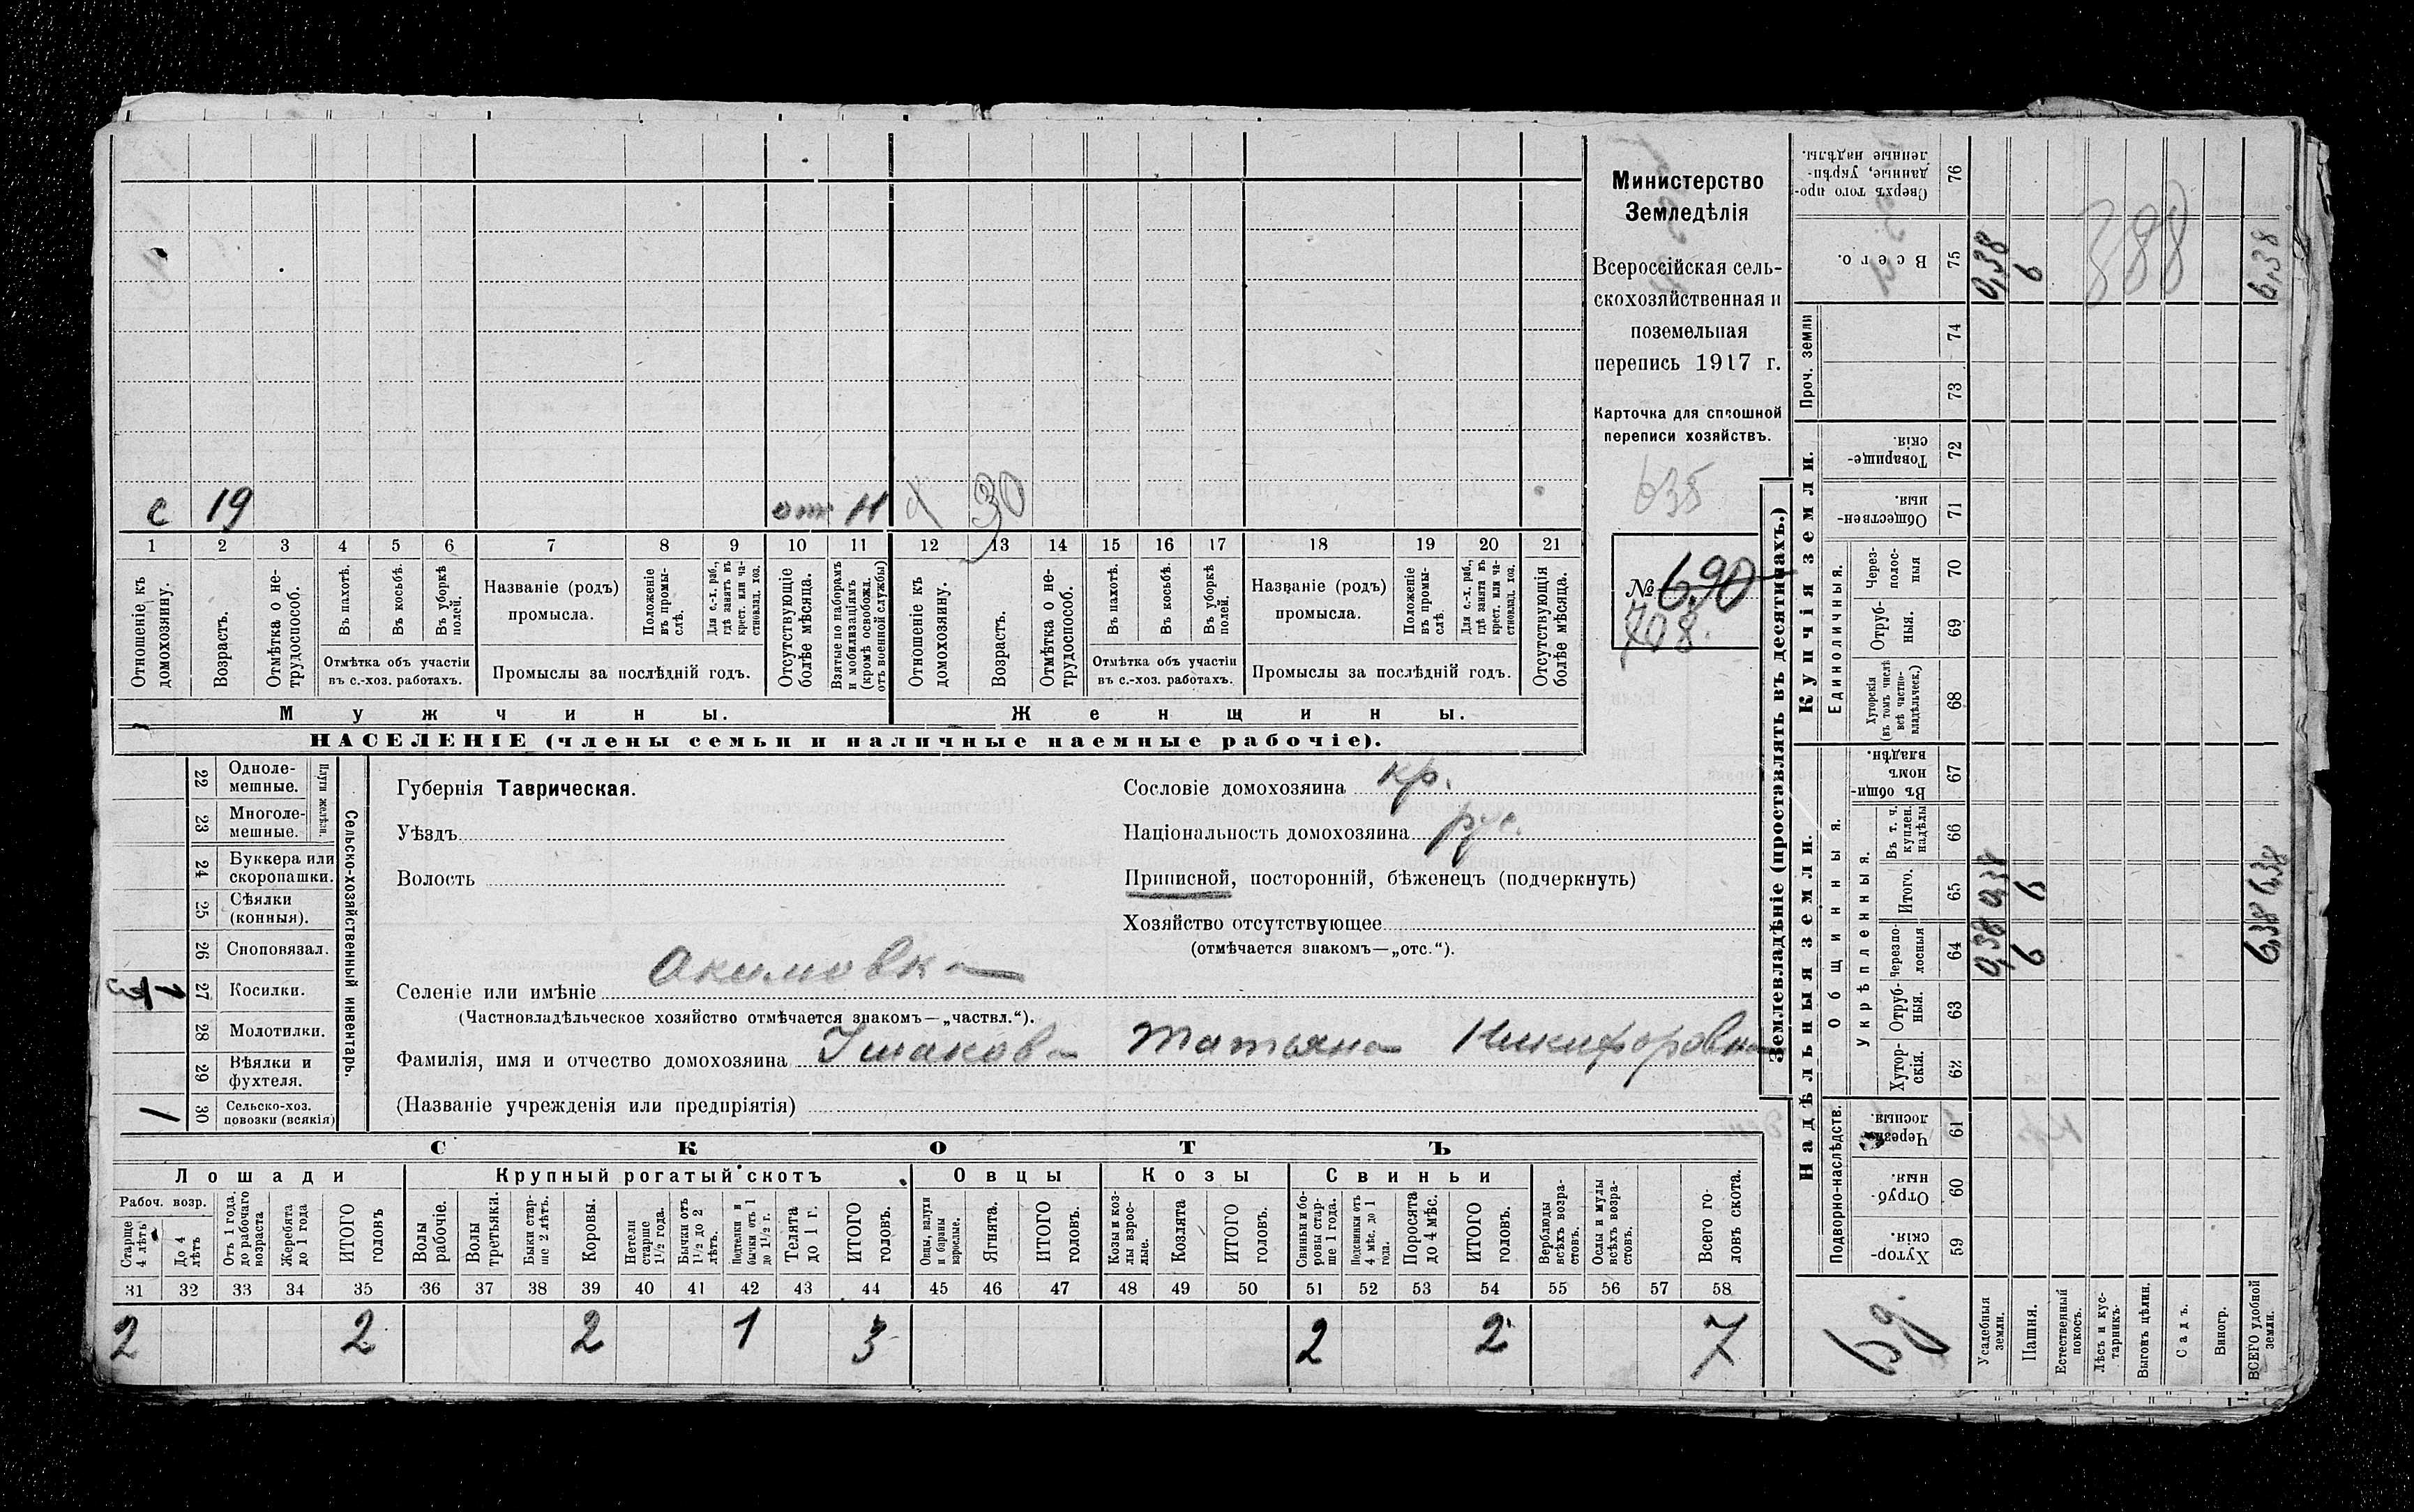 с 19 отс Н х 30
1 2 3 4 5 6 7 8 9 10 11 12 13 14 15 16 17 18 19 20 21
Отношеніе къ домохозяину.
Возрастъ.
Отмѣтка о не-
трудоспособ.
Въ пахотѣ.
Въ косьбѣ.
Въ уборкѣ
полей.
Отмѣтка объ участіи
въ с.-хоз. работахъ.
Названіе (родъ)
промысла.
Положеніе
въ промы-
слѣ.
Для с.-х. раб.,
гдѣ занятъ въ
крест. или ча-
стновлад. хоз.
Промыслы за послѣдній годъ.
Отсутствующіе
болѣе мѣсяца.
Взятые по наборамъ
и мобилизаціямъ
(кромѣ освобожд.
отъ военной службы)
Отношеніе къ
домохозяину.
Возрастъ.
Отмѣтка о не-
трудоспособ.
Въ пахотѣ.
Въ косьбѣ.
Въ уборкѣ
полей.
Отмѣтка объ участіи
въ с.-хоз. работахъ.
Названіе (родъ)
промысла.
Положеніе
въ промы-
слѣ
Для с.-х. раб.,
гдѣ занята въ
крест. или ча-
стновлад. хоз.
Промыслы за послѣдній годъ.
Отсутствующія
болѣе мѣсяца.
Мужчины.
Женщины.
НАСЕЛЕНІЕ (члены семьи и наличные наемные рабочіе).
Министерство
Земледѣлія
Всероссійская сель-
скохозяйственная и
поземельная
перепись 1917 г.
Карточка для сплошной
переписи хозяйствъ.
635
№ 690
708.
Сельско-хозяйственный инвентарь.
Плуги желѣзн.
22 Одноле-
мешные.
23 Многоле-
мешные.
24 Буккера или
скоропашки.
25 Сѣялки
(конныя).
26 Сноповязал.
27 Косилки.
1/3
28 Молотилки.
29 Вѣялки и
фухтеля.
30 Сельско-хоз.
повозки (всякія)
1
Губернія Таврическая.
Уѣздъ
Волость
Сословіе домохозяина кр.
Національность домохозяина рус.
Приписной, посторонній, бѣженецъ (подчеркнуть)
Хозяйство отсутствующее
(отмѣчается знакомъ—„отс.“).
Селеніе или имѣніе Акимовка
(Частновладѣльческое хозяйство отмѣчается знакомъ—„частвл.“).
Фамилія, имя и отчество домохозяина Ушакова Татьяна Никифоровна
(Названіе учрежденія или предпріятія)
СКОТЪ
Лошади
Крупный рогатый скотъ
Овцы
Козы
Свиньи
Рабоч. возр.
Старше
4 лѣтъ
До 4
лѣтъ
Отъ 1 года.
до рабочаго
возраста
Жеребята
до 1 года
ИТОГО
головъ
Волы
рабочіе.
Волы
третьяки.
Быки стар-
ше 2 лѣтъ.
Коровы.
Нетели
старше
1½ года.
Бычки отъ
1½ до 2
лѣтъ.
Подтелки и
бычки отъ 1
до 1½ г.
Телята
до 1 г.
ИТОГО
головъ.
Овцы, валухи
и бараны
взрослые.
Ягнята.
ИТОГО
головъ.
Козы и коз-
лы взрос-
лые.
Козлята
ИТОГО
головъ.
Свиньи и бо-
ровы стар-
ше 1 года.
Подсвинки отъ
4 мѣс. до 1
года.
Поросята
до 4 мѣс.
ИТОГО
головъ.
Верблюды
всѣхъ возра-
стовъ.
Ослы и мулы
всѣхъ возра-
стовъ.
Всего го-
ловъ скота.
31 32 33 34 35 36 37 38 39 40 41 42 43 44 45 46 47 48 49 50 51 52 53 54 55 56 57 58
2 2 2 1 3 2 2 7
Землевладѣніе (проставлять въ десятинахъ.)
Надѣльныя земли.
Купчія земли.
Проч. земли
Подворно-наслѣдств.
Общинныя.
Укрѣпленныя.
Единоличныя.
Хутор-
скія. 59
Отруб-
ныя. 60
Черезпо-
лосныя. 61
Хутор-
скія. 62
Отруб-
ныя. 63
Черезпо-
лосныя 64
Итого. 65
Въ т. ч.
куплен.
надѣлы 66
Въ общи-
номъ
владѣн. 67
Хуторскія
(въ томъ числѣ
всѣ частно-
владѣльческ.) 68
Отруб-
ныя. 69
Через-
полос-
ныя 70
Обществен-
ныя. 71
Товарище-
скія. 72
73
74
Всего. 75
Сверхъ того про-
данные, укрѣп-
ленные надѣлы. 76
Усадебныя
земли.
0,38 0,38 0,38
Пашня.
6 6 6
Естественный
покосъ.
Лѣсъ и кус-
тарникъ.
Выгонъ цѣлин.
Садъ.
Виногр.
ВСЕГО удобной
земли.
6,38 6,38 6,38
388